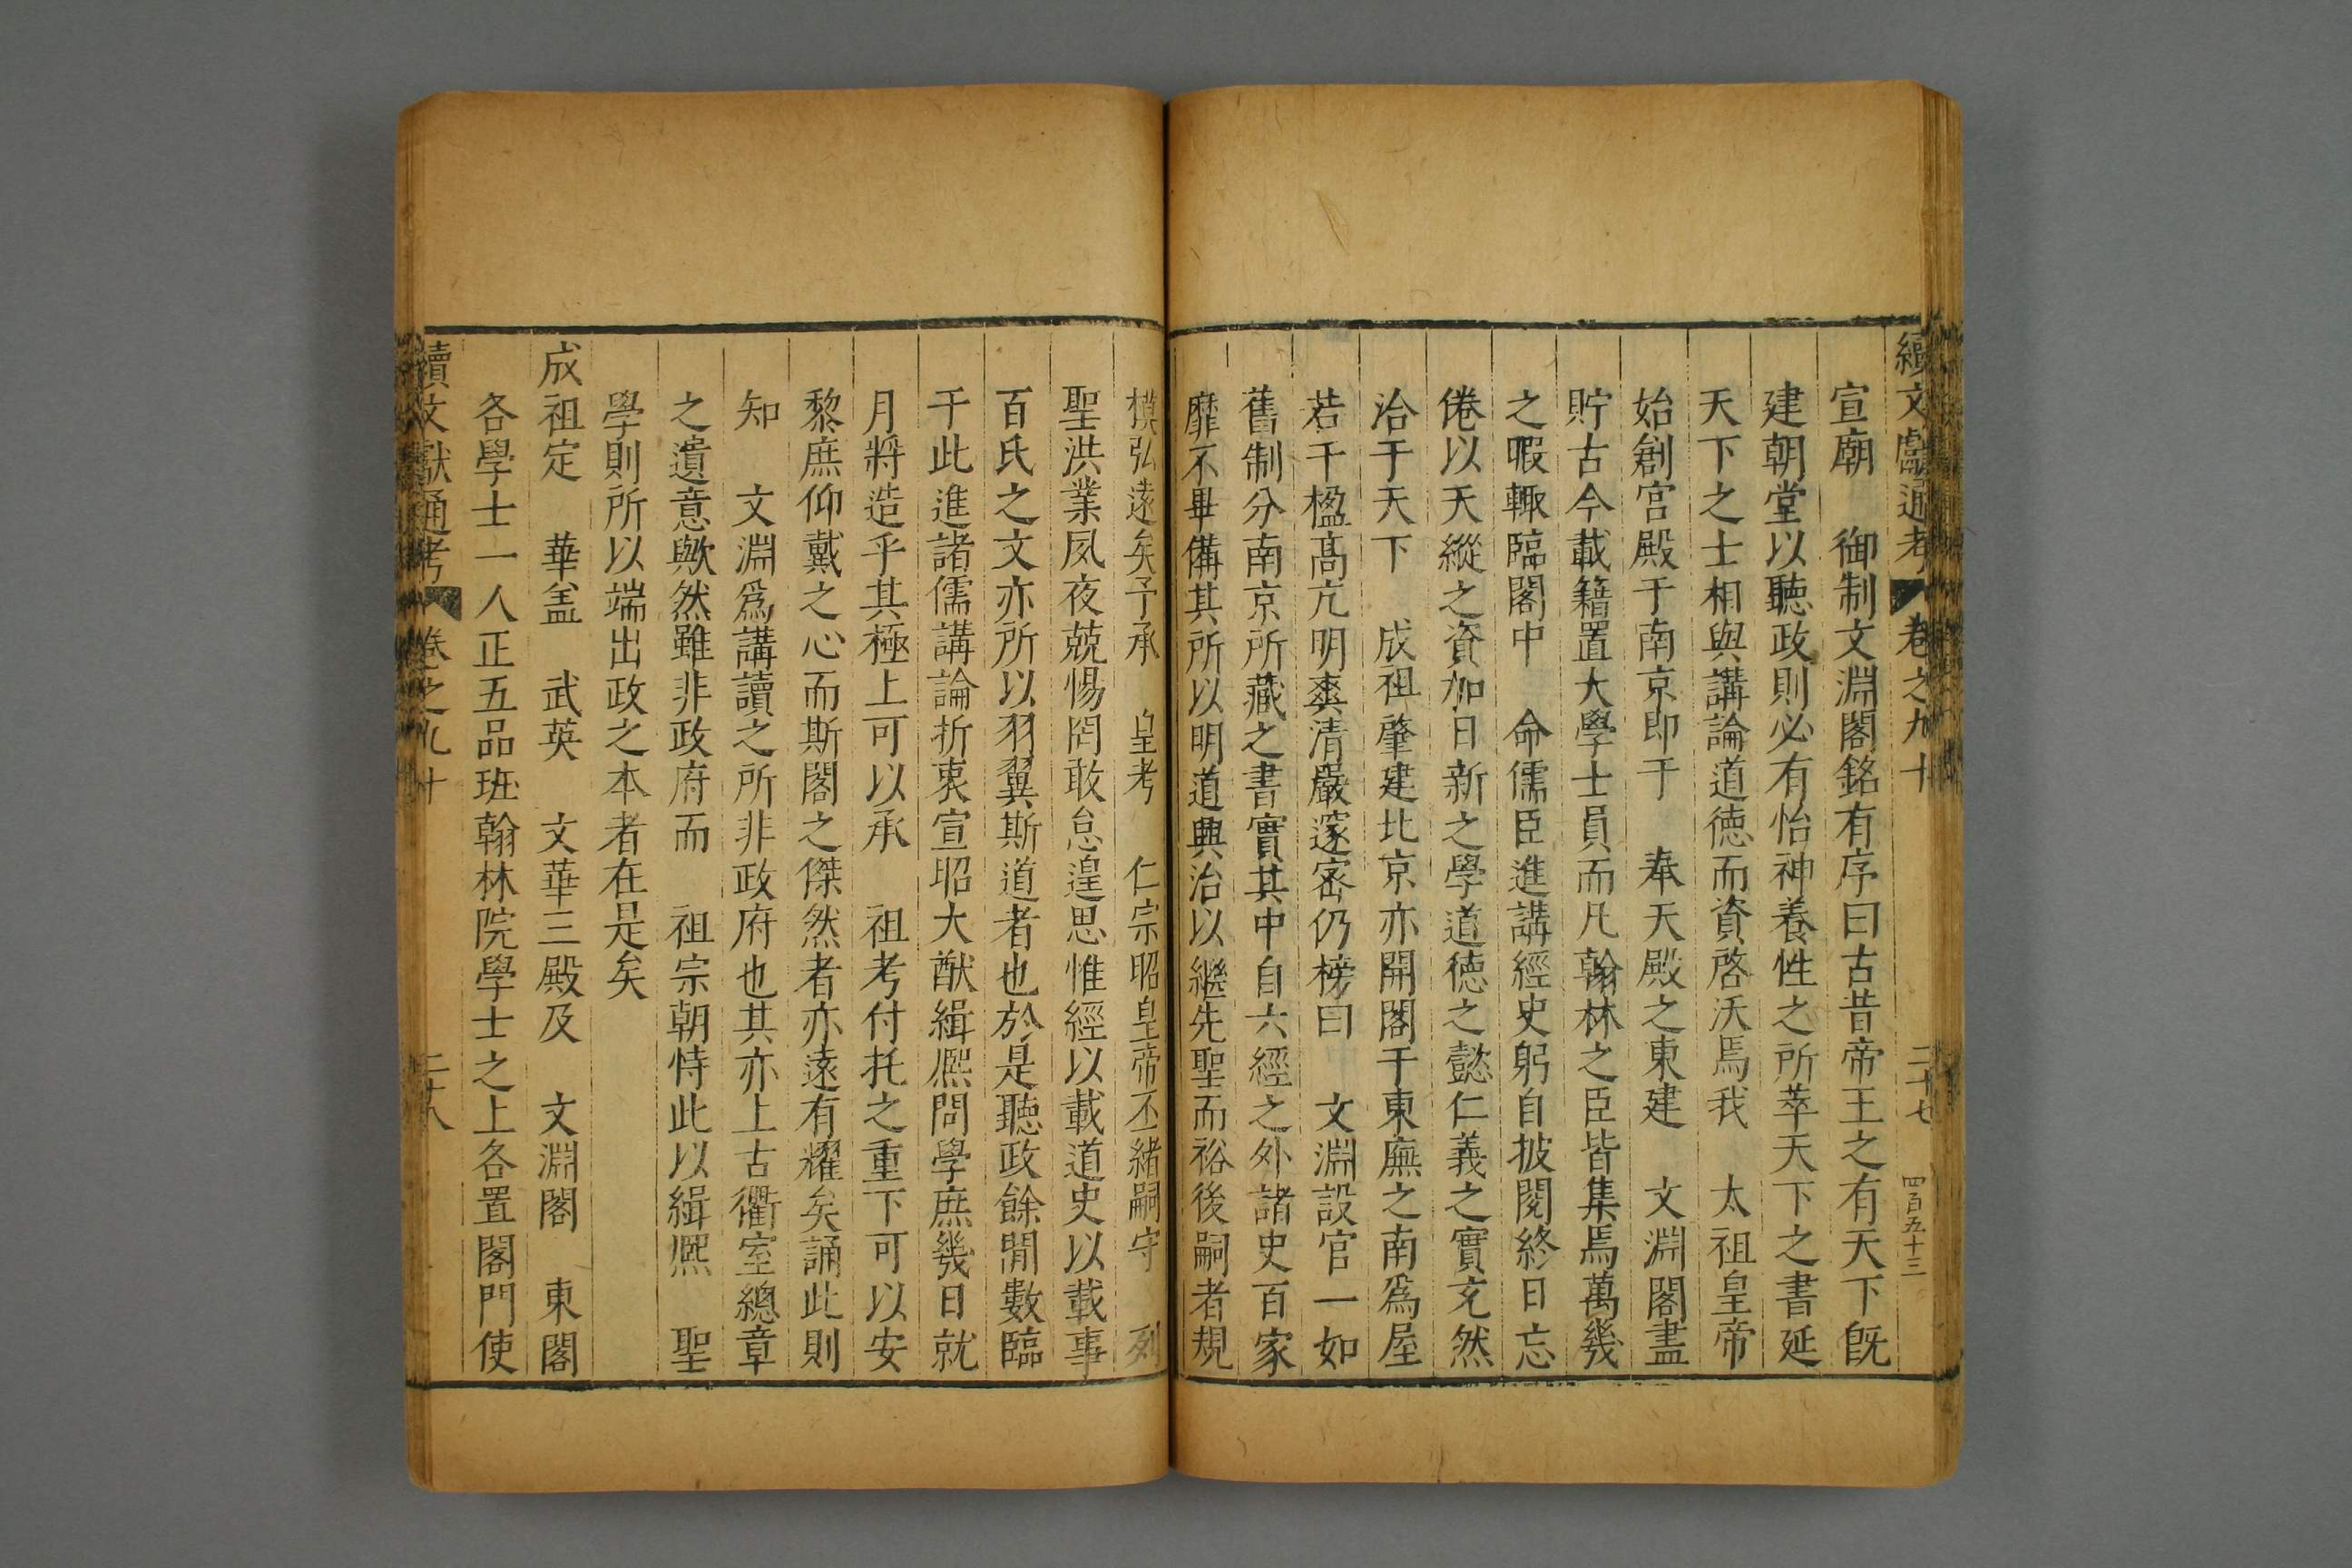 續文獻通考 卷之九十 二十七 四百五十三
宣廟 御制文淵閣銘有序曰古昔帝王之有天下既
建朝堂以聽政則必有怡神養性之所萃天下之書延
天下之士相與講論道德而資啓沃焉我 太祖皇帝
始創宮殿于南京即于 奉天殿之東建 文淵閣盡
貯古今載籍置大學士員而凡翰林之臣皆集焉萬幾
之暇輙臨閣中 命儒臣進講經史躬自披閱終日忘
倦以天縱之資加日新之學道德之懿仁義之實充然
洽于天下 成祖肇建北京亦開閣于東廡之南爲屋
若干楹高亢明爽清嚴邃密仍榜曰 文淵設官一如
舊制分南京所藏之書實其中自六經之外諸史百家
靡不畢備其所以明道興治以繼先聖而裕後嗣者規
模弘遠矣予承 皇考 仁宗昭皇帝丕緒嗣守 列
聖洪業夙夜兢惕罔敢怠遑思惟經以載道史以載事
百氏之文亦所以羽翼斯道者也於是聽政餘閒數臨
于此進諸儒講論折衷宣昭大猷緝熈問學庶幾日就
月將造乎其極上可以承 祖考付托之重下可以安
黎庶仰戴之心而斯閣之傑然者亦遠有耀矣誦此則
知 文淵爲講讀之所非政府也其亦上古衢室總章
之遺意歟然雖非政府而 祖宗朝恃此以緝熈 聖
學則所以端出政之本者在是矣
成祖定 華盖 武英 文華三殿及 文淵閣 東閣
各學士一人正五品班翰林院學士之上各置閣門使
續文獻通考 卷之九十 二十八